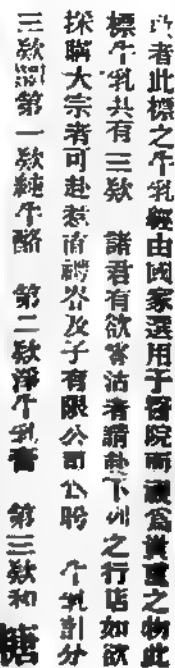 者此標之牛乳經由國家選用于醫院而視為貴重之物此
標牛乳共有三欵 諸君有欲嘗沽者請赴下列之行店如欲
採購大宗者可赴惹南禮咨及子有限公司公聆 牛乳割分
三欵 第一欵純牛酪 第二欵淨牛乳膏 第三欵和糖